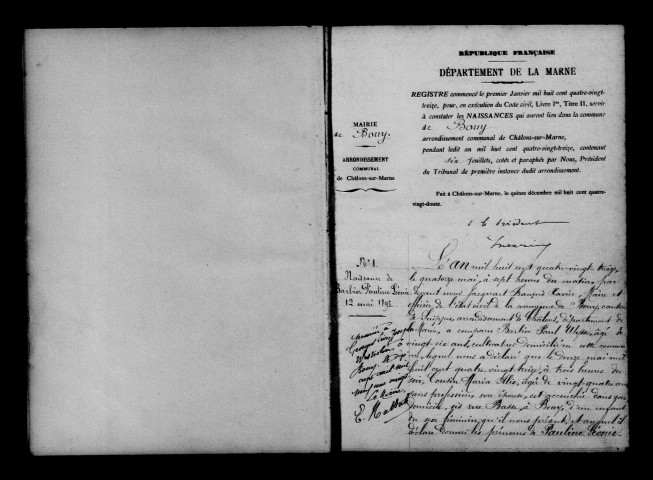 RÉPUBLIQUE FRANÇAISE
DÉPARTEMENT DE LA MARNE
REGISTRE commencé le premier Janvier mil huit cent quatre-vingt-
treize, pour, en exécution du Code civil, Livre Ier, Titre II, servir
à constater les NAISSANCES qui auront lieu dans la commune
de Bouy
arrondissement communal de Châlons-sur-Marne,
pendant ledit an mil huit cent quatre-vingt-treize, contenant
six feuillets, cotés et paraphés par Nous, Président
du Tribunal de première instance dudit arrondissement.
Fait à Châlons-sur-Marne, le quinze décembre mil huit cent quatre-
vingt-douze.
MAIRIE
de Bouy.
ARRONDISSEMENT
COMMUNAL
de Châlons-sur-Marne
Le Président
No 1.
Naissance de
Barbier Pauline Léonie
12 mai 1893
L'AN mil huit cent quatre-vingt treize,
le quatorze mai, à sept heures du matin, par
devant nous Jacquart François Xavier, Maire et
officier de l'état civil de la commune de Bouy, canton
de Suippes, arrondissement de Châlons, département de
Marne, a comparu Barbier Paul Ulysse, âgé de
vingt six ans, cultivateur domicilié en cette commune
lequel nous a déclaré que le douze mai mil
huit cent quatre vingt treize, à trois heures du
soir, Cousin Maria, âgée de vingt quatre ans
sans profession, son épouse, est accouchée dans son
domicile, sis rue Basse, à Bouy, d'un enfant
du sexe féminin, qu'il nous présente et auquel il
déclare donner les prénoms de Pauline Léonie.